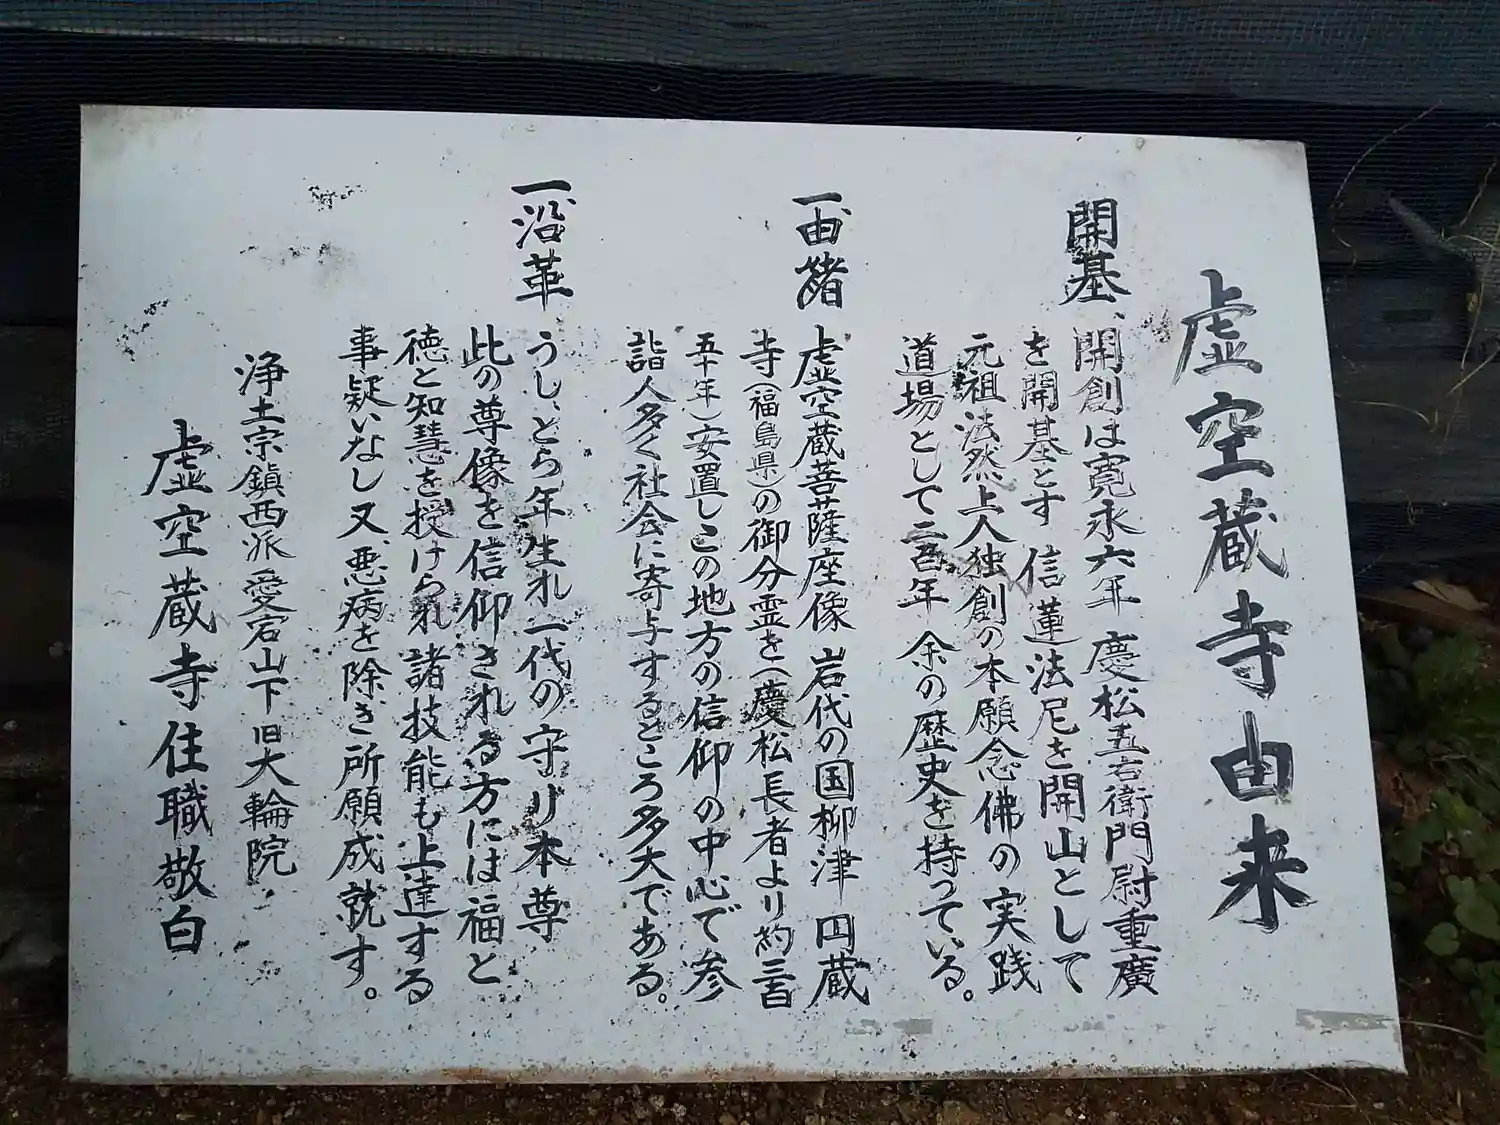 虚空蔵寺由来
開基、開創は寛永六年 慶松五右衛門尉重廣
を開基とす 信蓮法尼を開山として
元祖法然上人独創の本願念佛の実践
道場として三百年 余の歴史を持っている。
一由緒 虚空蔵菩薩座像 岩代の国柳津 円蔵
寺(福島県)の御分霊を(慶松長者より約三百
五十年)安置しこの地方の信仰の中心で参
詣人多く社会に寄与するところ多大である。
一沿革、うし、とら年生れ一代の守り本尊
此の尊像を信仰される方には福と
徳と知慧を授けられ諸技能も上達する
事疑いなし又、悪病を除き所願成就す。
浄土宗鎮西派愛宕山下旧大輪院
虚空蔵寺住職敬白